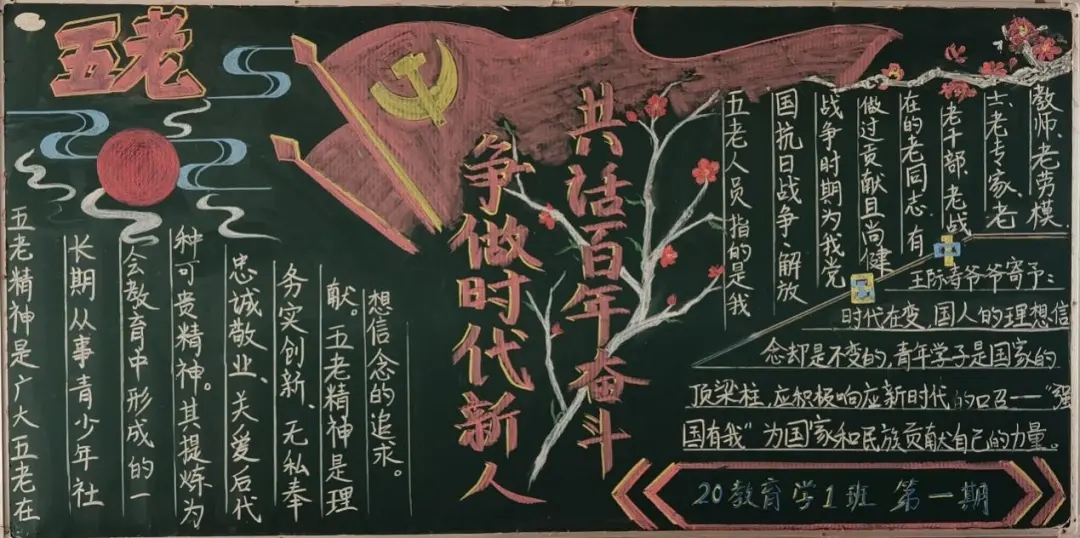 五老
五老精神是广大五老在
长期从事青少年社
会教育中形成的一
种可贵精神。其提炼为
忠诚敬业、关爱后代
务实创新、无私奉
献。五老精神是理
想信念的追求。
共话百年奋斗
争做时代新人
五老人员指的是我
国抗日战争、解放
战争时期为我党
做过贡献且尚健
在的老同志.有
老干部、老战
士、老专家、老
教师、老劳模.
王爷爷寄予：
时代在变，国人的理想信
念却是不变的，青年学子是国家的
顶梁柱，应积极响应新时代的口召—“强
国有我”为国家和民族贡献自己的力量。
20教育学1班 第一期